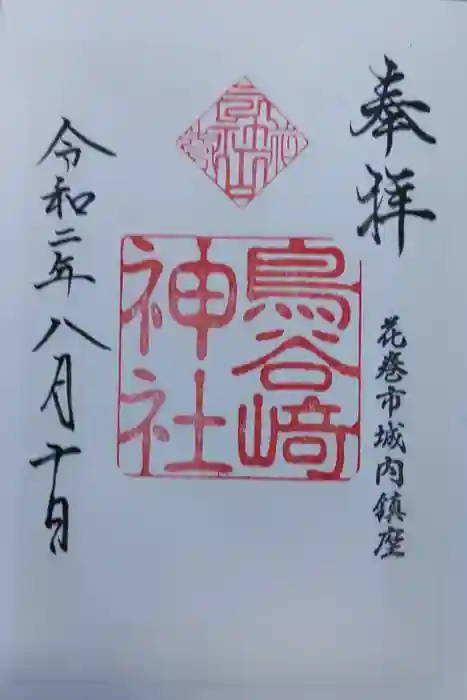 奉拝
花巻市城内鎮座
鳥谷﨑
神社
令和二年八月十日